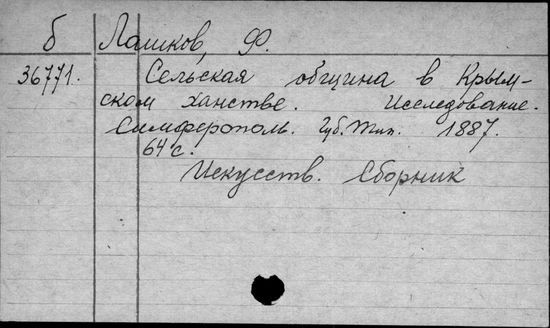 б Лашков, Ф.
36771. Сельская община в Крым-
ском Ханстве. Исследование.
Симферополь. Губ. тип. 1887.
64 с.
Искусств. Сборник